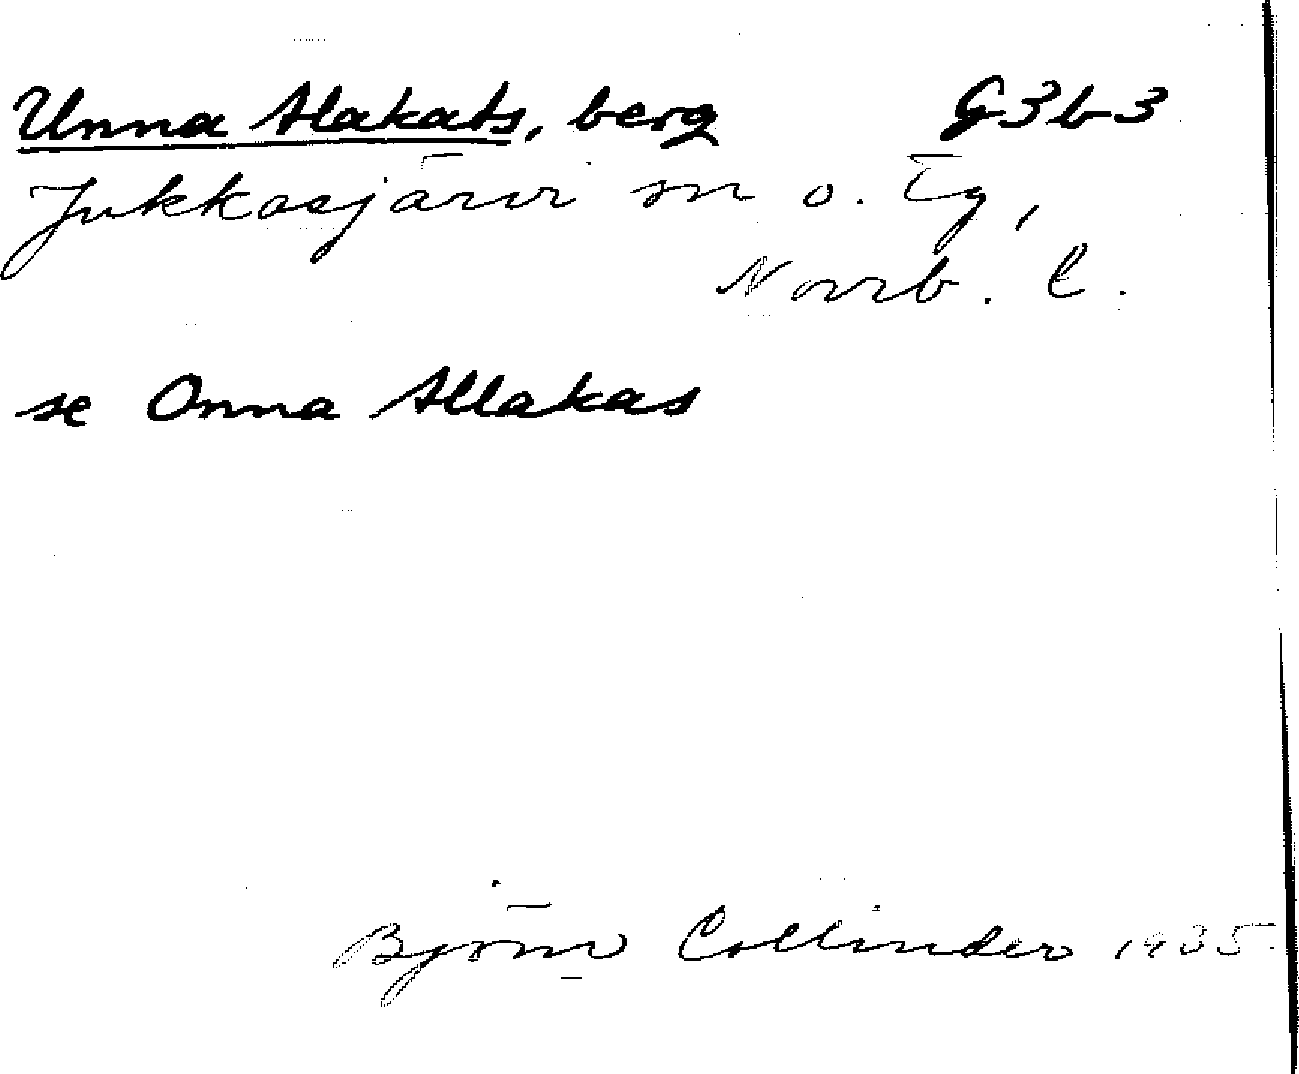 Unna Alakats, berg G3b3
Jukkasjärvi sn o. tg,
Norrb. l.
se Onna Allakas
Björn Collinder 1935